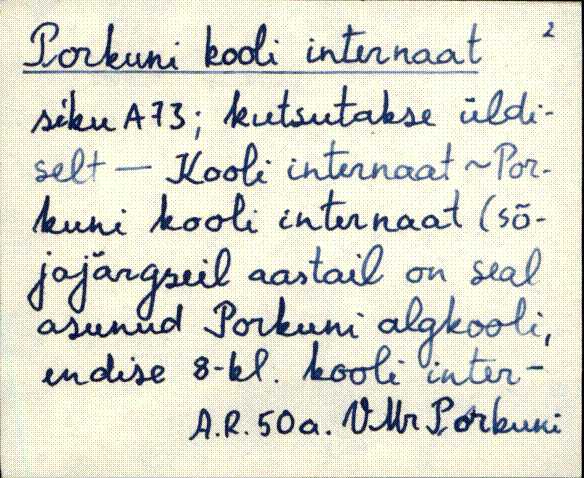 2
Porkuni kooli internaat
siku A73; kutsutakse üldi-
selt — Kooli internaat ~ Por-
kuni kooli internaat (sõ-
jajärgseil aastail on seal
asunud Porkuni algkooli,
endise 8-kl. kooli inter-
A.R. 50 a. VMr Porkuni